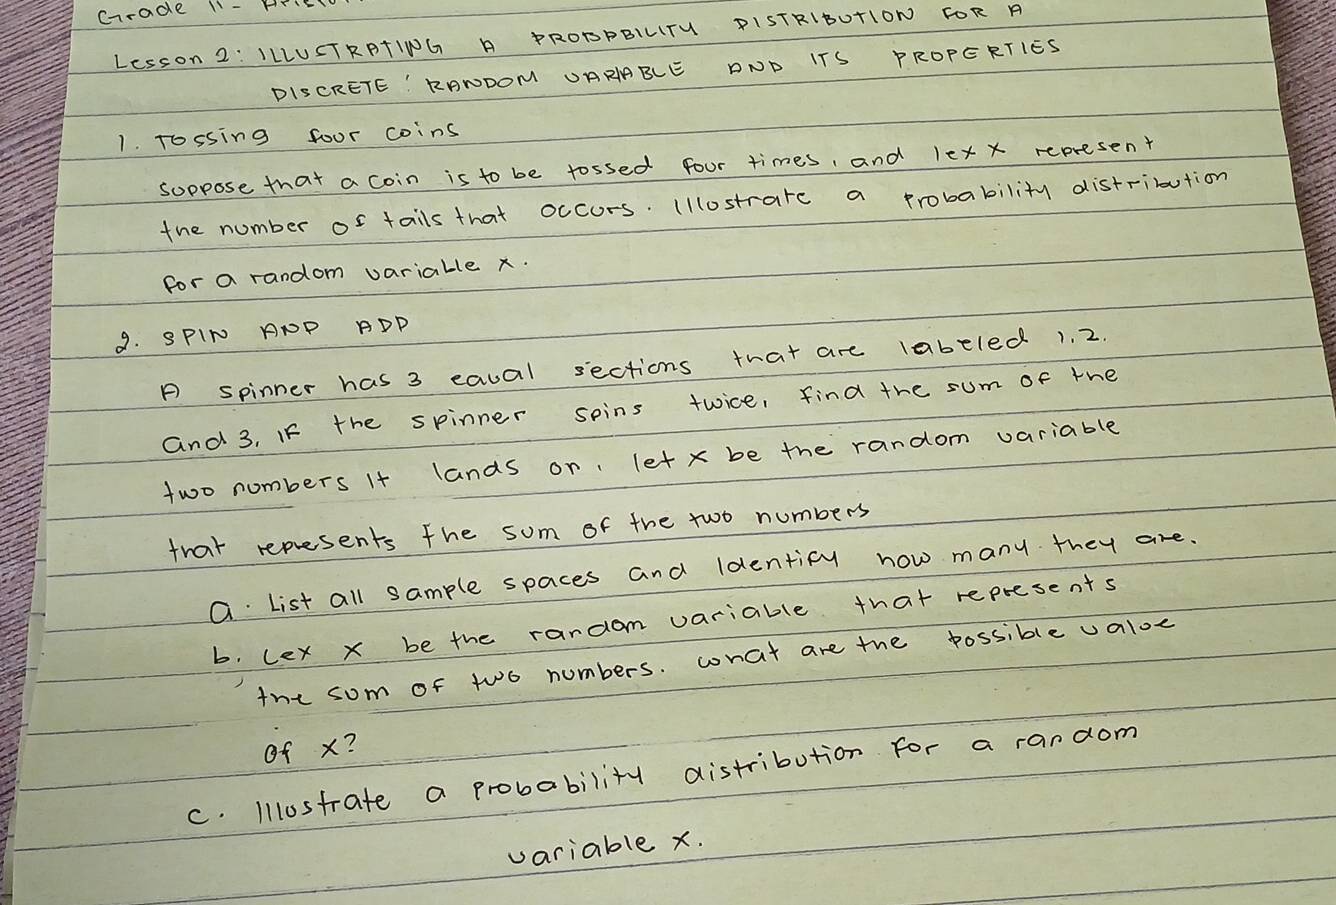 Grade 11 -
Lesson 2: ILLUSTRATING A PROBABILITY DISTRIBUTION FOR A
DISCRETE RANDOM VARIABLE AND ITS PROPERTIES
1. Tossing four coins
Suppose that a coin is to be tossed four times, and lex x represent
the number of tails that occurs. Illustrate a probability distribution
for a random variable x.
2. SPIN AND ADD
A spinner has 3 equal sections that are labeled 1, 2.
and 3, if the spinner spins twice, find the sum of the
two numbers it lands on, let x be the random variable
that represents the sum of the two numbers
a. List all sample spaces and Identify how many they are.
b. Lex x be the random variable that represents
the sum of two numbers. what are the possible value
of x?
c. Illustrate a probability distribution for a random
variable x.